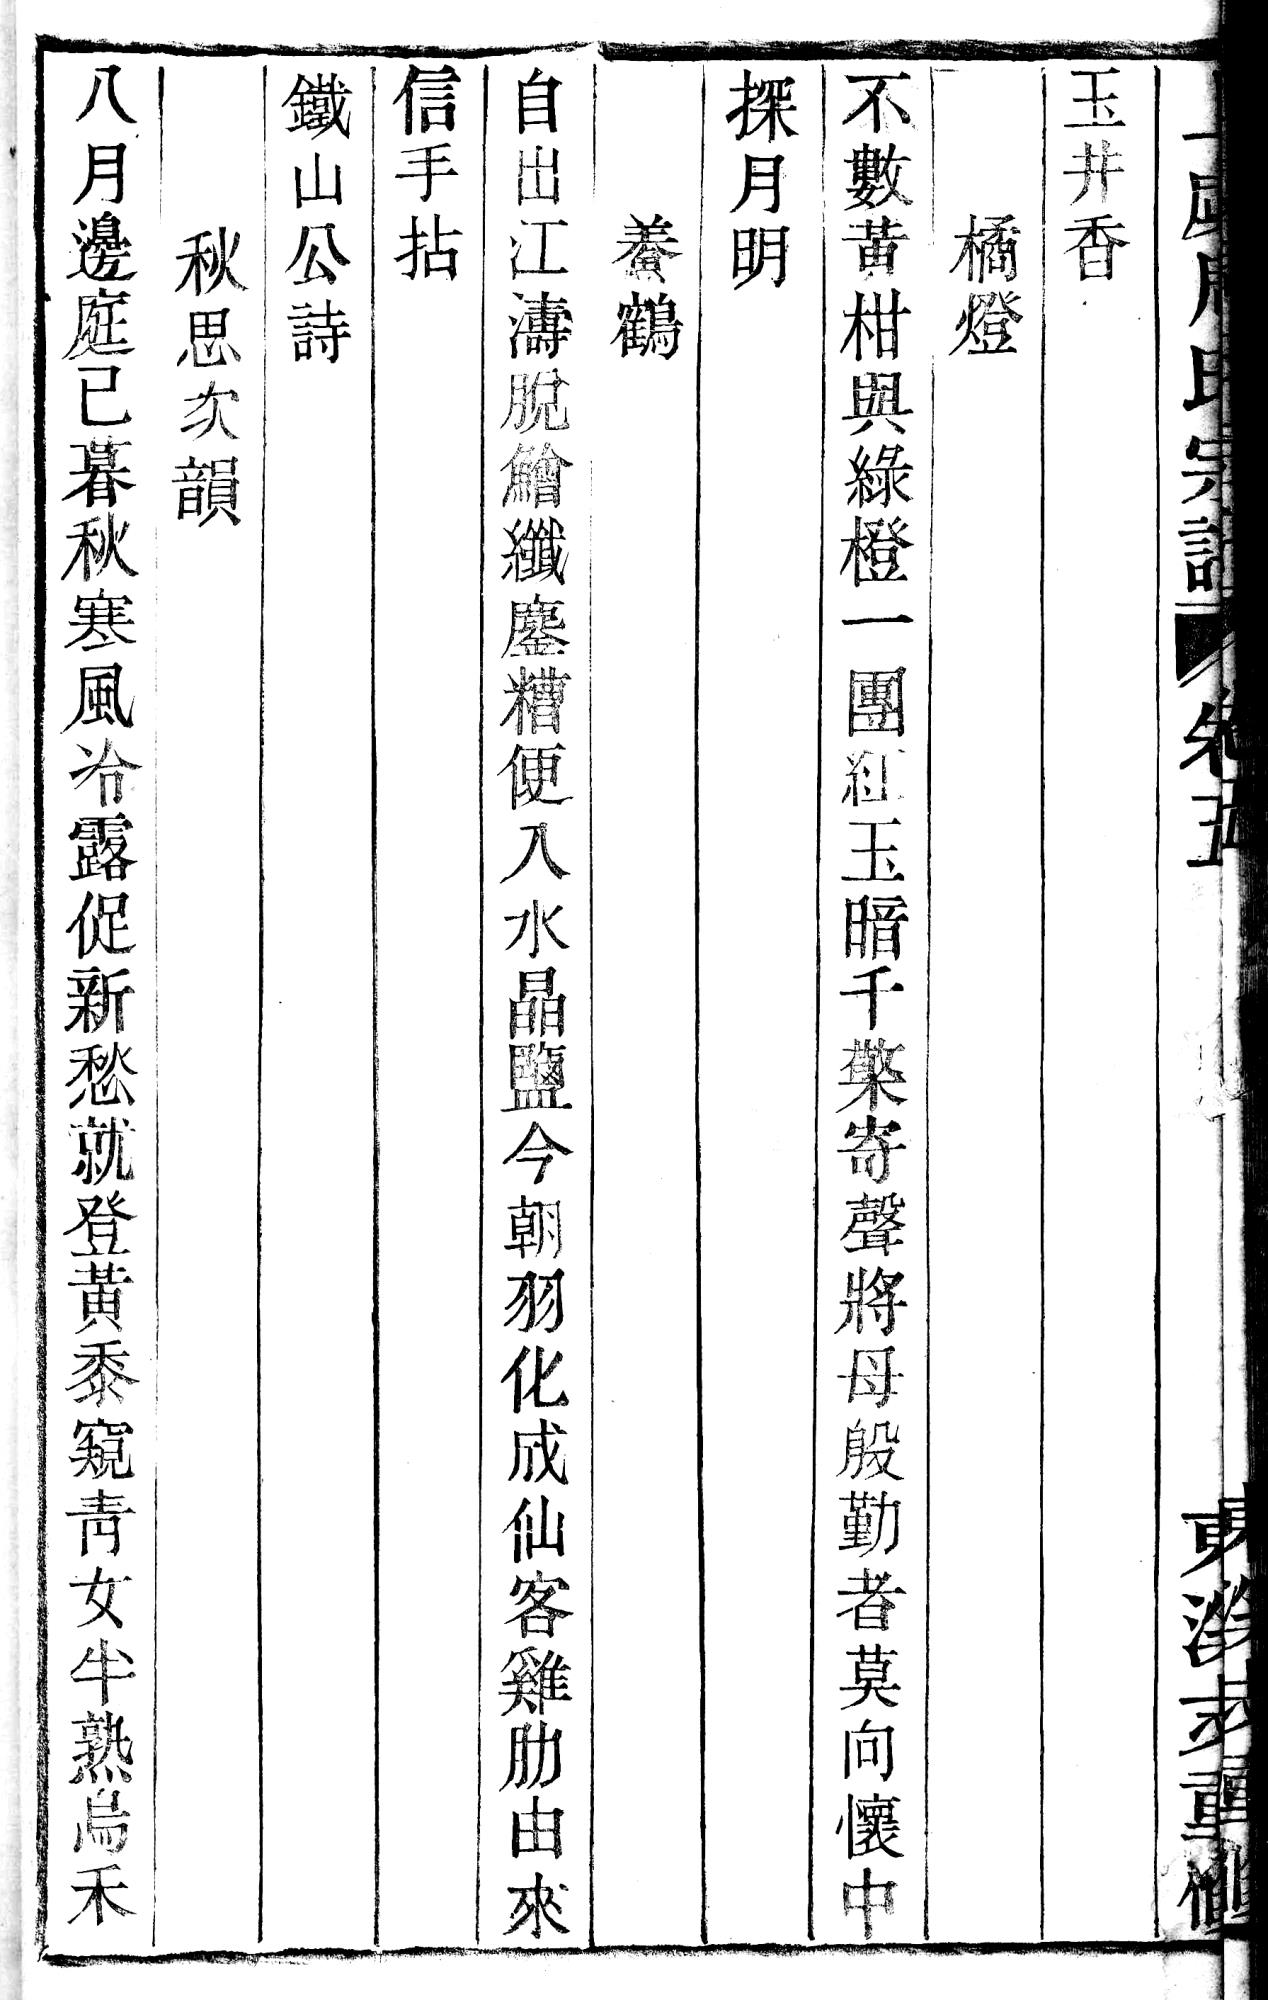 玉井香
橘燈
不數黃柑與綠橙一團紅玉暗千藥寄聲將母殷勤者莫向懷中
探月明
鯗鶴
自出江濤脫鱠纖鏖糟便入水晶鹽今朝羽化成仙客雞肋由來
信手拈
鐵山公詩
秋思次韻
八月邊庭已暮秋寒風冷露促新愁就登黃黍窺青女牛熟烏禾